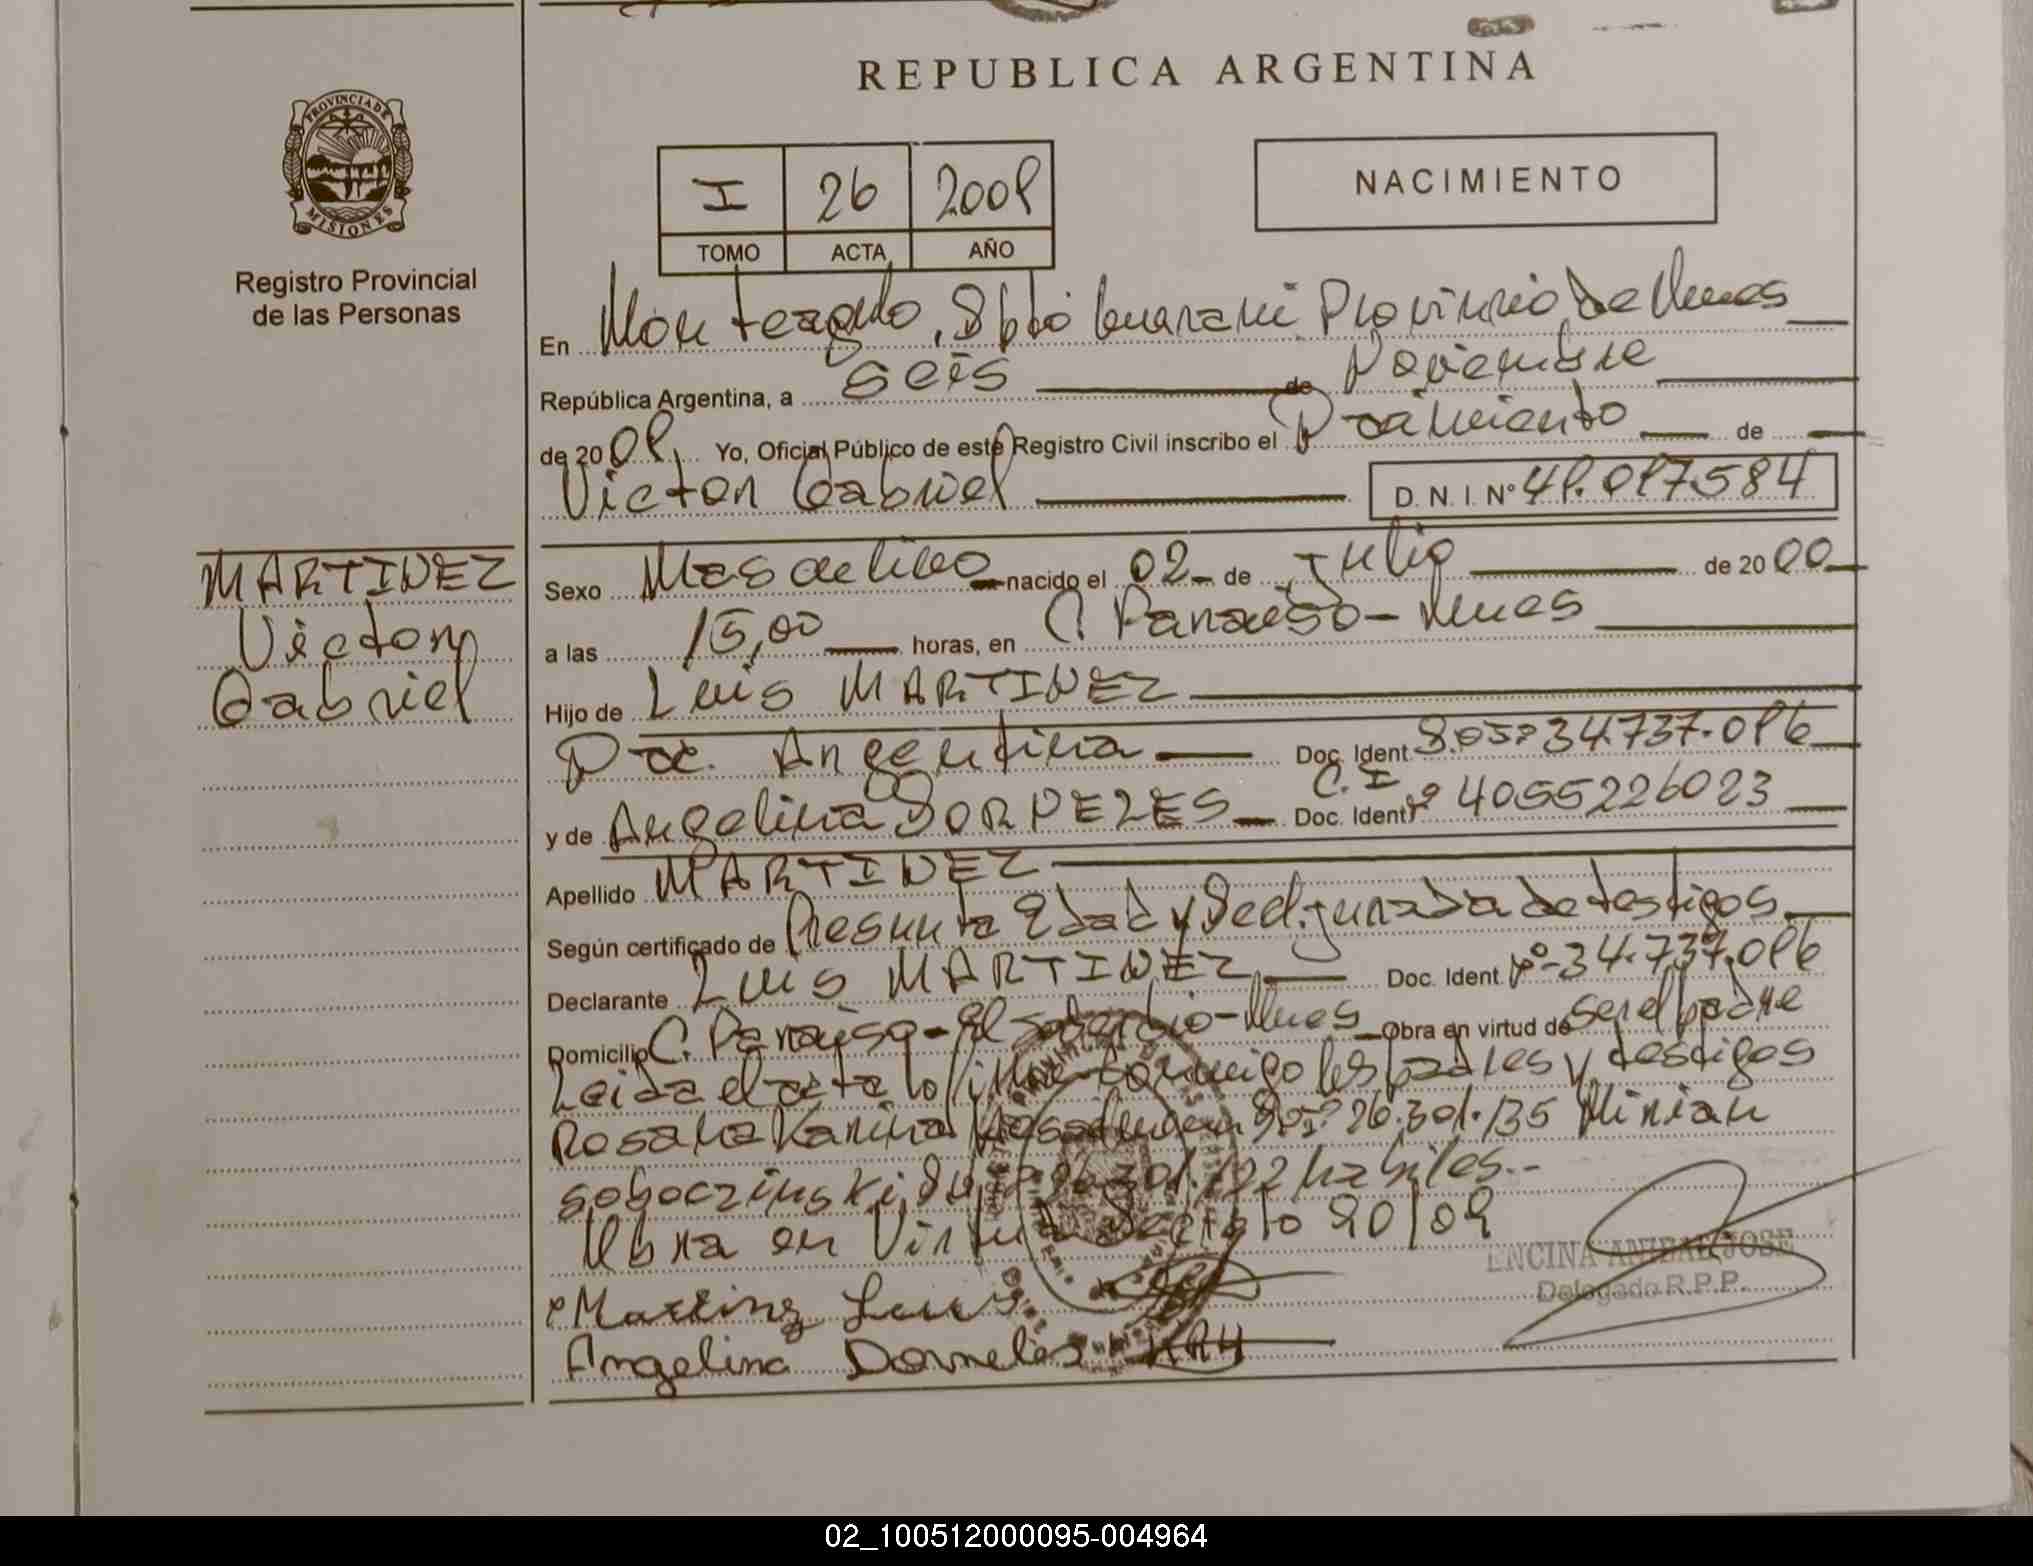 REPUBLICA ARGENTINA
PROVINCIA DE
MISIONES
Registro Provincial
de las Personas
I 26 2009
TOMO ACTA AÑO
NACIMIENTO
En Monteagudo, Dpto Guarani Provincia de Mnes
República Argentina, a seis de Noviembre
de 2009 Yo, Oficial Público de este Registro Civil inscribo el Nacimiento de
Victor Gabriel D. N. I. Nº 49.097584
MARTINEZ
Victor
Gabriel
Sexo Masculino nacido el 02 de Julio de 2000
a las 15,00 horas, en C. Paraiso - Mnes
Hijo de Luis MARTINEZ
Nac. Argentina Doc. Ident. 34.737.096
y de Angelina DORNELES C.I. Doc. Ident Nº 4055226023
Apellido MARTINEZ
Según certificado de Presunta Edad y Decl. jurada de testigos
Declarante Luis MARTINEZ Doc. Ident. Nº 34.737.096
Domicilio C. Paraiso - El soberbio - Mnes Obra en virtud de ser el padre
Leida el acta lo firman conmigo los padres y testigos
Rosana Karina 26.301.135 Mirian
Soboczinski 26.301.122 habiles.-
Obra en Virtud Decreto 90/09
Martinez Luis
Angelina Dorneles
ENCINA ANIBAL JOSE
Delegado R.P.P.
02_100512000095-004964